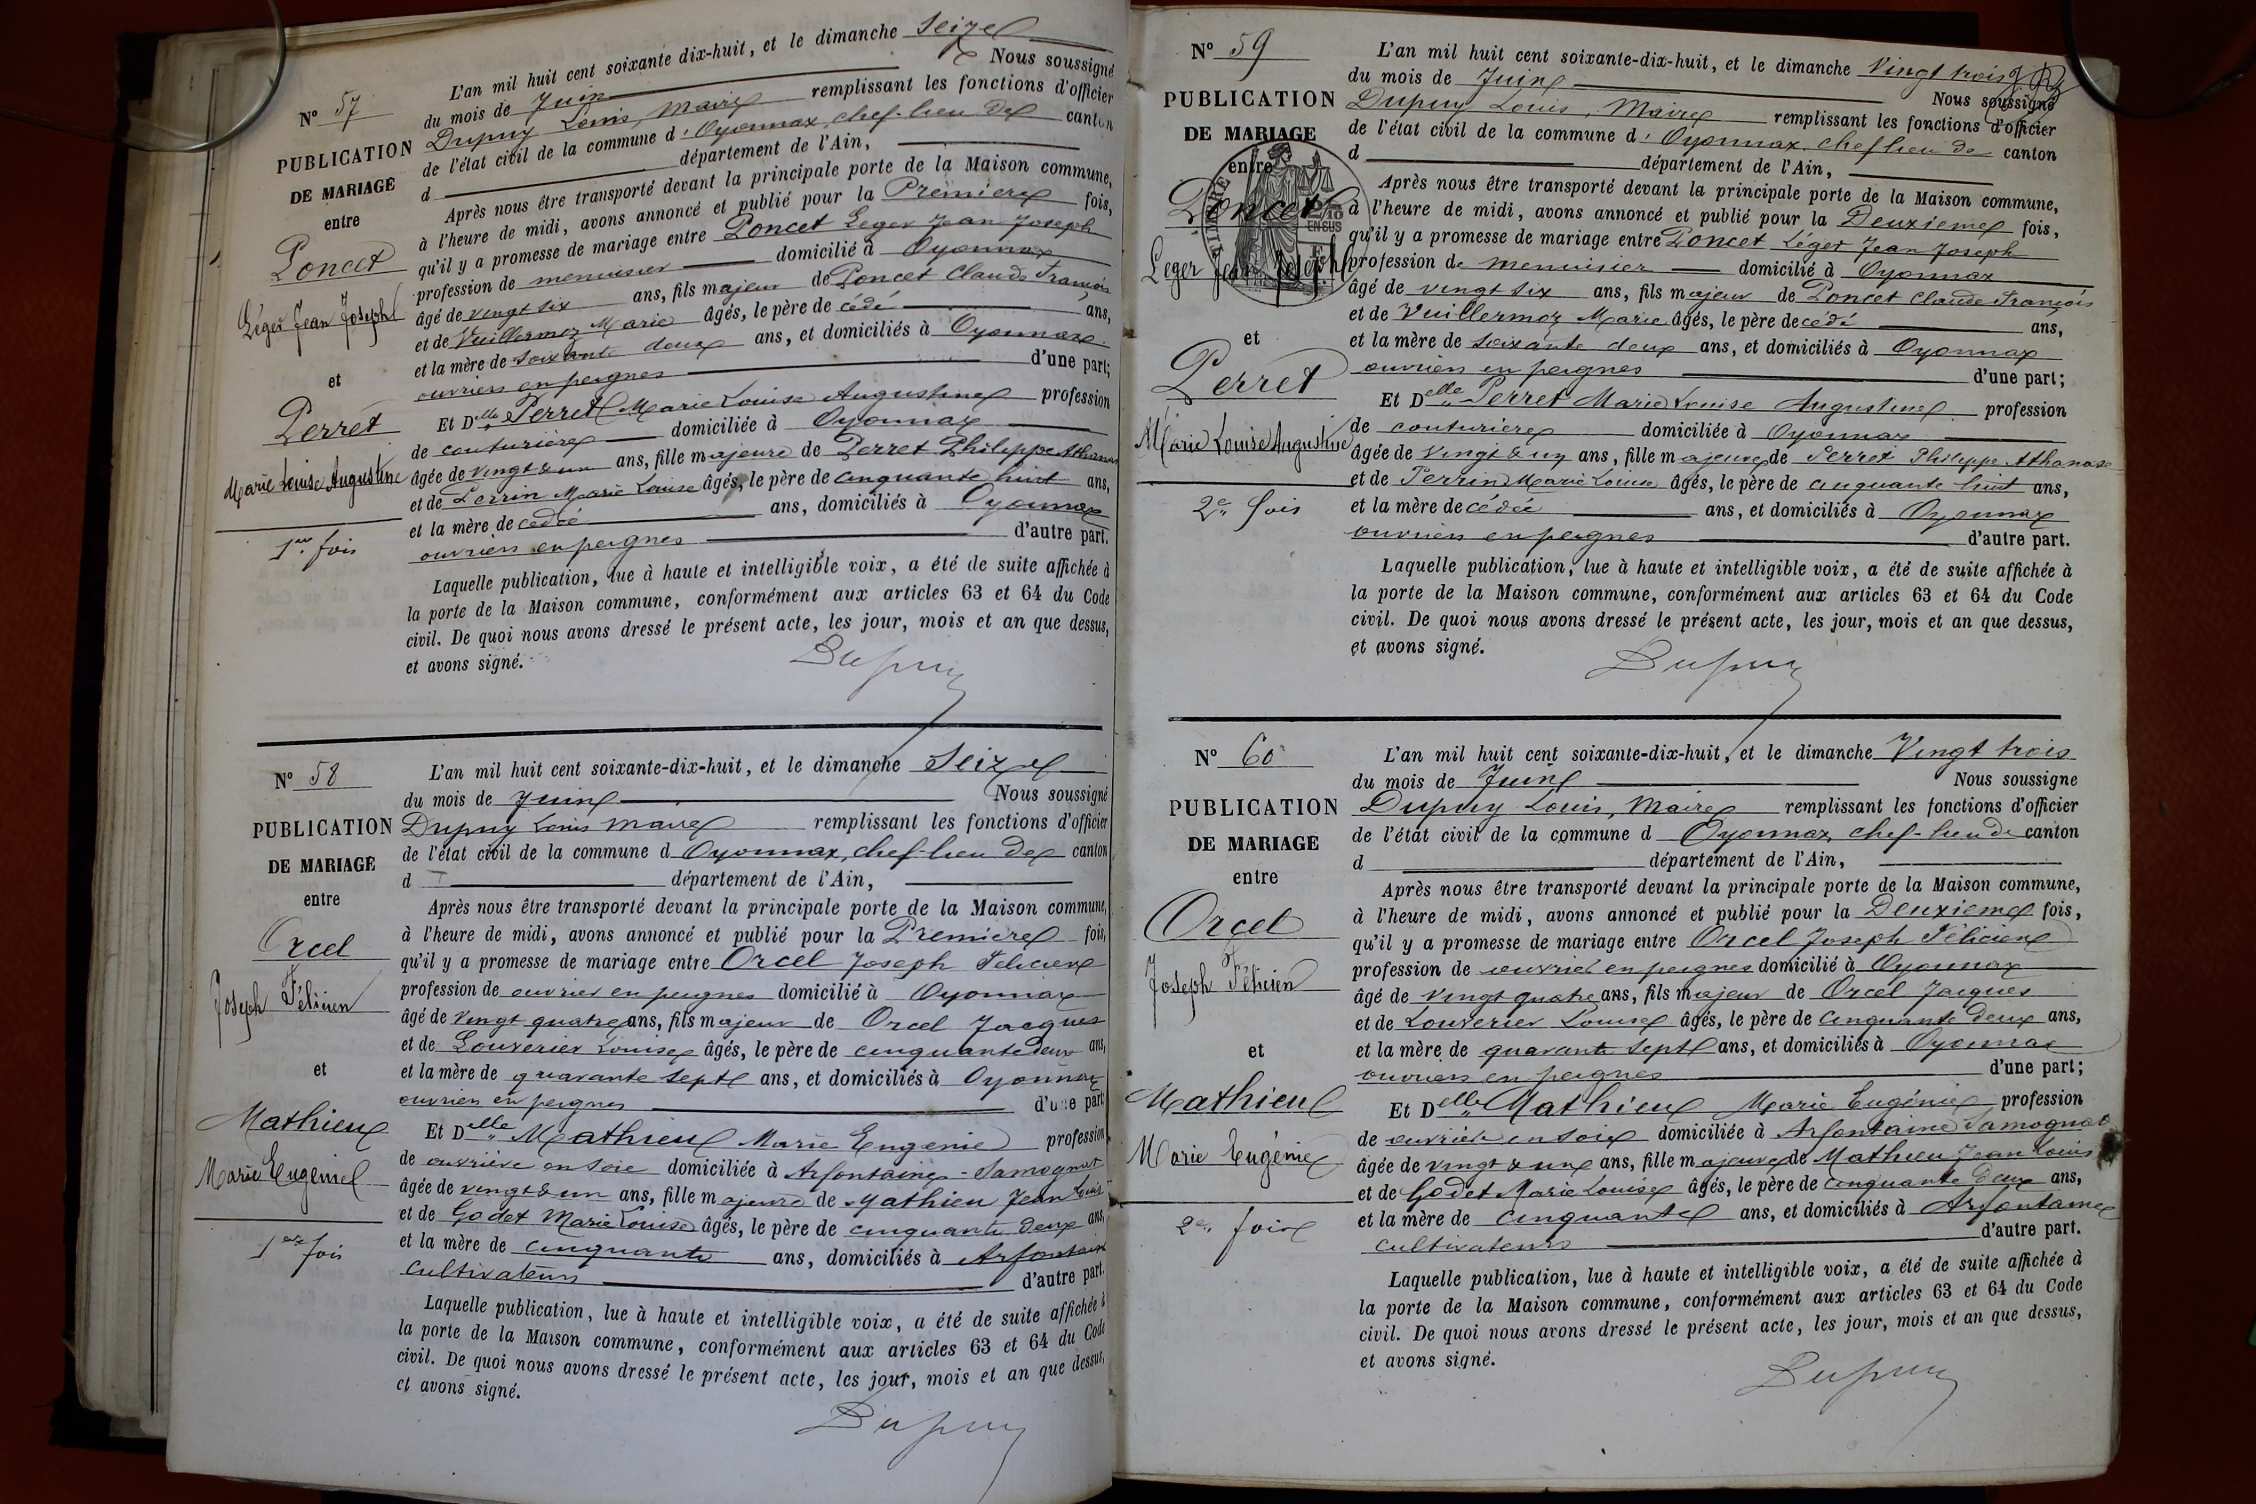 N° 57
PUBLICATION
DE MARIAGE
entre
Poncet
Léger Jean Joseph
et
Perret
Marie Louise Augustine
1re fois
L'an mil huit cent soixante dix-huit, et le dimanche Seize
du mois de Juin Nous soussigné
Dupuy Louis, Maire remplissant les fonctions d'officier
de l'état civil de la commune d'Oyonnax, chef-lieu de canton
d département de l'Ain,
Après nous être transporté devant la principale porte de la Maison commune,
à l'heure de midi, avons annoncé et publié pour la Première fois,
qu'il y a promesse de mariage entre Poncet Leger Jean Joseph
profession de menuisier domicilié à Oyonnax
âgé de vingt six ans, fils majeur de Poncet Claude François
et de Vuillermoz Marie âgés, le père de cédé ans,
et la mère de soixante deux ans, et domiciliés à Oyonnax
ouvriers en peignes d'une part;
Et Delle Perret Marie Louise Augustine profession
de couturière domiciliée à Oyonnax
âgée de vingt & un ans, fille majeure de Perret Philippe Athanase
et de Perrin Marie Louise âgés, le père de cinquante huit ans,
et la mère de cédée ans, domiciliés à Oyonnax
ouvriers en peignes d'autre part.
Laquelle publication, lue à haute et intelligible voix, a été de suite affichée à
la porte de la Maison commune, conformément aux articles 63 et 64 du Code
civil. De quoi nous avons dressé le présent acte, les jour, mois et an que dessus,
et avons signé.
Dupuy
N° 58
PUBLICATION
DE MARIAGE
entre
Orcel
Joseph Félicien
et
Mathieu
Marie Eugénie
1re fois
L'an mil huit cent soixante-dix-huit, et le dimanche Seize
du mois de Juin Nous soussigné
Dupuy Louis Maire remplissant les fonctions d'officier
de l'état civil de la commune d Oyonnax, chef-lieu de canton
d département de l'Ain,
Après nous être transporté devant la principale porte de la Maison commune,
à l'heure de midi, avons annoncé et publié pour la Première fois,
qu'il y a promesse de mariage entre Orcel Joseph Felicien
profession de ouvrier en peignes domicilié à Oyonnax
âgé de vingt quatre ans, fils majeur de Orcel Jacques
et de Louverier Louise âgés, le père de cinquante deux ans,
et la mère de quarante sept ans, et domiciliés à Oyonnax
ouvriers en peignes d'une part
Et Delle Mathieu Marie Eugenie profession
de ouvrière en soie domiciliée à Arfontaine - Samognat
âgée de vingt & un ans, fille majeure de Mathieu Jean Louis
et de Godet Marie Louise âgés, le père de cinquante deux ans,
et la mère de cinquante ans, domiciliés à Arfontaine
cultivateurs d'autre part.
Laquelle publication, lue à haute et intelligible voix, a été de suite affichée à
la porte de la Maison commune, conformément aux articles 63 et 64 du Code
civil. De quoi nous avons dressé le présent acte, les jour, mois et an que dessus,
et avons signé.
Dupuy
N° 59
PUBLICATION
DE MARIAGE
entre
TIMBRE
2/10
EN SUS
Poncet
Léger Jean Joseph
et
Perret
Marie Louise Augustine
2e fois
L'an mil huit cent soixante-dix-huit, et le dimanche Vingt trois
du mois de Juin Nous soussigné
Dupuy Louis, Maire remplissant les fonctions d'officier
de l'état civil de la commune d'Oyonnax chef lieu de canton
d département de l'Ain,
Après nous être transporté devant la principale porte de la Maison commune,
à l'heure de midi, avons annoncé et publié pour la Deuxième fois,
qu'il y a promesse de mariage entre Poncet Léger Jean Joseph
profession de menuisier domicilié à Oyonnax
âgé de vingt six ans, fils majeur de Poncet Claude François
et de Vuillermoz Marie âgés, le père de cédé ans,
et la mère de soixante deux ans, et domiciliés à Oyonnax
ouvriers en peignes d'une part;
Et Delle Perret Marie Louise Augustine profession
de couturière domiciliée à Oyonnax
âgée de vingt & un ans, fille majeure de Perret Philippe Athanase
et de Perrin Marie Louise âgés, le père de cinquante huit ans,
et la mère de cédée ans, et domiciliés à Oyonnax
ouvriers en peignes d'autre part.
Laquelle publication, lue à haute et intelligible voix, a été de suite affichée à
la porte de la Maison commune, conformément aux articles 63 et 64 du Code
civil. De quoi nous avons dressé le présent acte, les jour, mois et an que dessus,
et avons signé.
Dupuy
N° 60
PUBLICATION
DE MARIAGE
entre
Orcel
Joseph Félicien
et
Mathieu
Marie Eugénie
2e fois
L'an mil huit cent soixante-dix-huit, et le dimanche Vingt trois
du mois de Juin Nous soussigné
Dupuy Louis, Maire remplissant les fonctions d'officier
de l'état civil de la commune d Oyonnax, chef-lieu de canton
d département de l'Ain,
Après nous être transporté devant la principale porte de la Maison commune,
à l'heure de midi, avons annoncé et publié pour la Deuxième fois,
qu'il y a promesse de mariage entre Orcel Joseph Félicien
profession de ouvrier en peignes domicilié à Oyonnax
âgé de vingt quatre ans, fils majeur de Orcel Jacques
et de Louverier Louise âgés, le père de cinquante deux ans,
et la mère de quarante sept ans, et domiciliés à Oyonnax
ouvriers en peignes d'une part;
Et Delle Mathieu Marie Eugénie profession
de ouvrière en soie domiciliée à Arfontaine Samognat
âgée de vingt & une ans, fille majeure de Mathieu Jean Louis
et de Godet Marie Louise âgés, le père de cinquante deux ans,
et la mère de cinquante ans, et domiciliés à Arfontaine
cultivateurs d'autre part.
Laquelle publication, lue à haute et intelligible voix, a été de suite affichée à
la porte de la Maison commune, conformément aux articles 63 et 64 du Code
civil. De quoi nous avons dressé le présent acte, les jour, mois et an que dessus,
et avons signé.
Dupuy